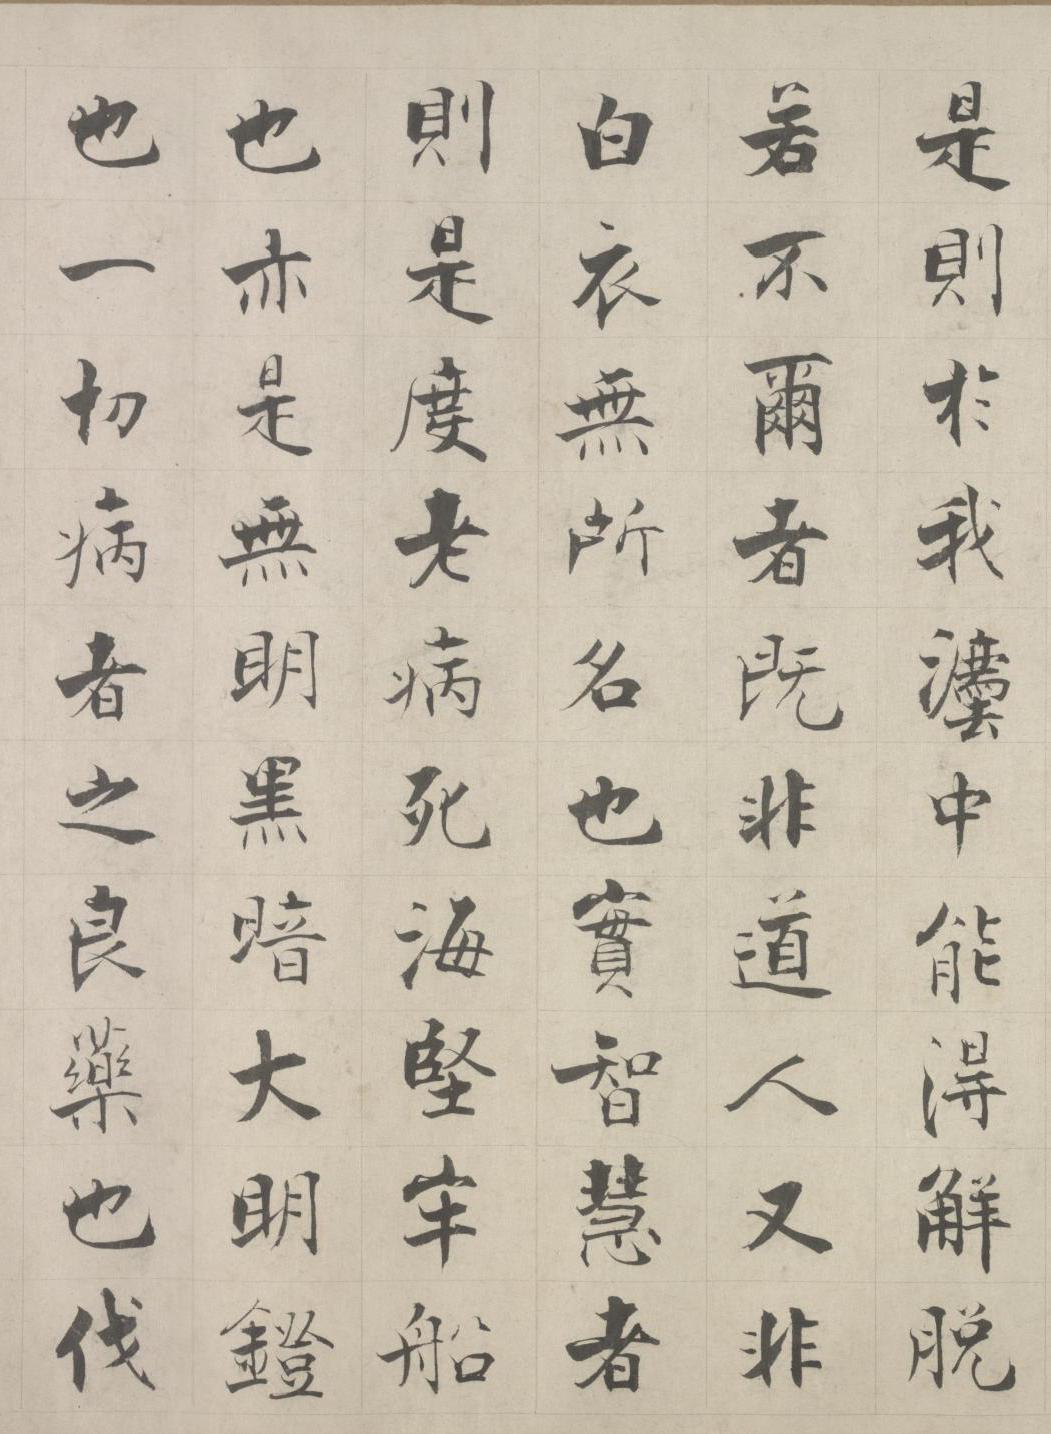 是則於我灋中能得解脫
若不爾者既非道人又非
白衣無所名也實智慧者
則是度老病死海堅牢船
也亦是無明黑暗大明鐙
也一切病者之良藥也伐